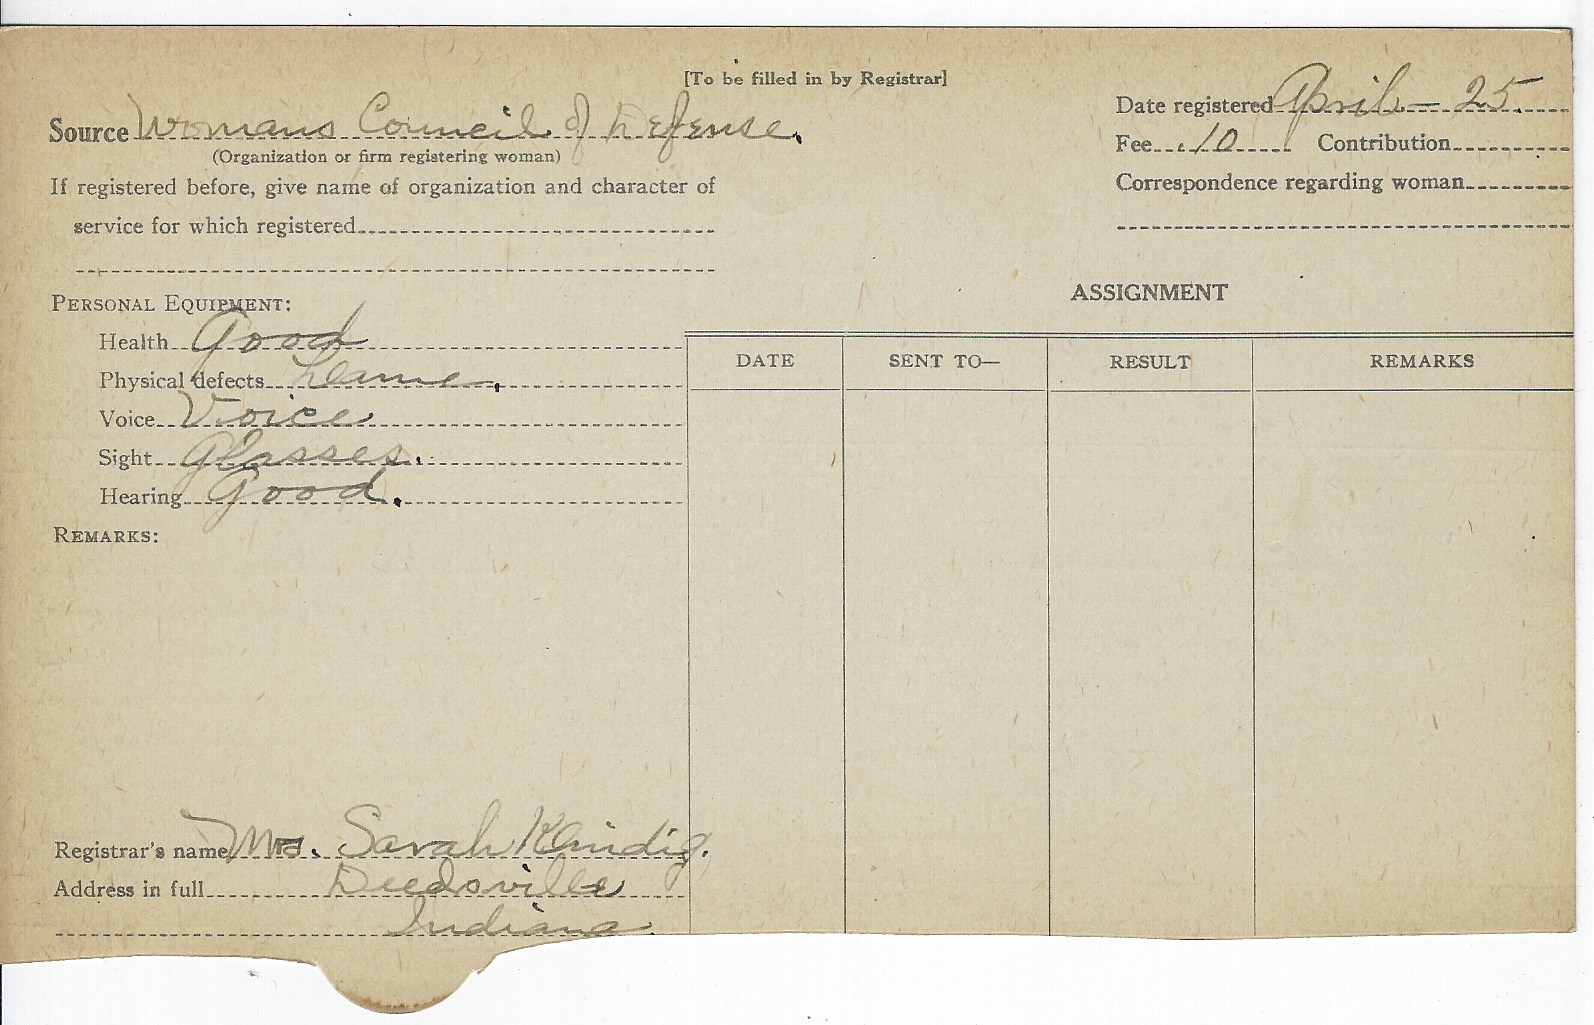 [To be filled in by Registrar]
Source Womans Council of Defense.
(Organization or firm registering woman)
If registered before, give name of organization and character of
service for which registered
Date registered April - 25.
Fee .10 Contribution
Correspondence regarding woman
PERSONAL EQUIPMENT:
Health Good
Physical defects Lame.
Voice Voice
Sight Glasses.
Hearing Good.
REMARKS:
ASSIGNMENT
DATE SENT TO— RESULT REMARKS
Registrar's name Mrs. Sarah
Address in full Deedsville
Indiana.